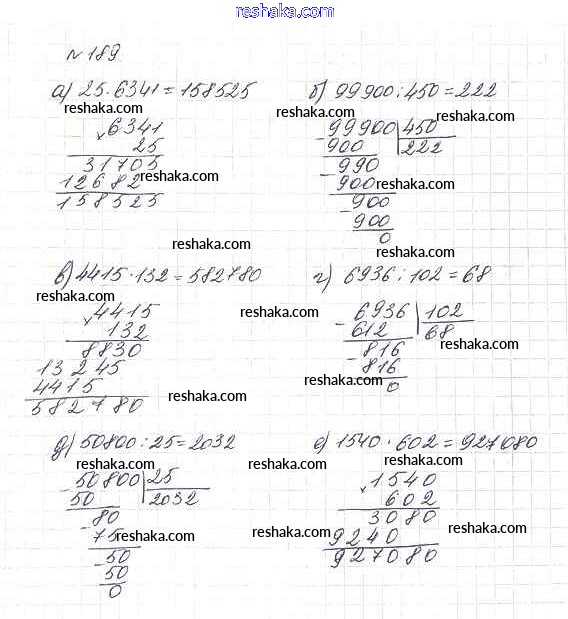 www.reshaka.com
№ 189
а) 25·6341=158525
reshaka.com
× 6341
25
31705
12682 reshaka.com
158525
б) 99900:450=222
reshaka.com reshaka.com
- 99900 | 450
900 222
- 990 reshaka.com
900 reshaka.com
- 900
900
0
reshaka.com
в) 4415·132=582780
reshaka.com
× 4415
132
8830
13245
4415 reshaka.com
582780
г) 6936:102=68
reshaka.com
- 6936 | 102
612 68
- 816 reshaka.com
816 reshaka.com
0
д) 50800:25=2032
reshaka.com
- 50800 | 25
50 2032
- 80
75 reshaka.com
- 50
50
0
е) 1540·602=927080
reshaka.com
× 1540
602
3080
9240 reshaka.com
reshaka.com
927080